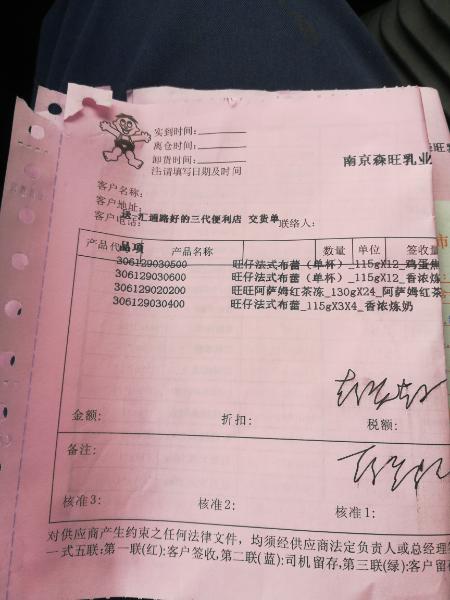 实到时间:
离仓时间:
卸货时间:
注:请填写日期及时间
南京森旺乳业
客户名称:
客户地址:
汇通路好的三代便利店 交货单
客户电话:
联络人:
产品代 品项 产品名称 数量 单位 签收量
306129030500 旺仔法式布蕾(单杯)_115gX12_鸡蛋焦
306129030600 旺仔法式布蕾(单杯)_115gX12_香浓炼
306129020200 旺旺阿萨姆红茶冻_130gX24_阿萨姆红茶
306129030400 旺仔法式布蕾_115gX3X4_香浓炼奶
金额: 折扣: 税额:
备注:
核准3: 核准2: 核准1:
对供应商产生约束之任何法律文件，均须经供应商法定负责人或总经理
一式五联:第一联(红):客户签收,第二联(蓝):司机留存,第三联(绿):客户留